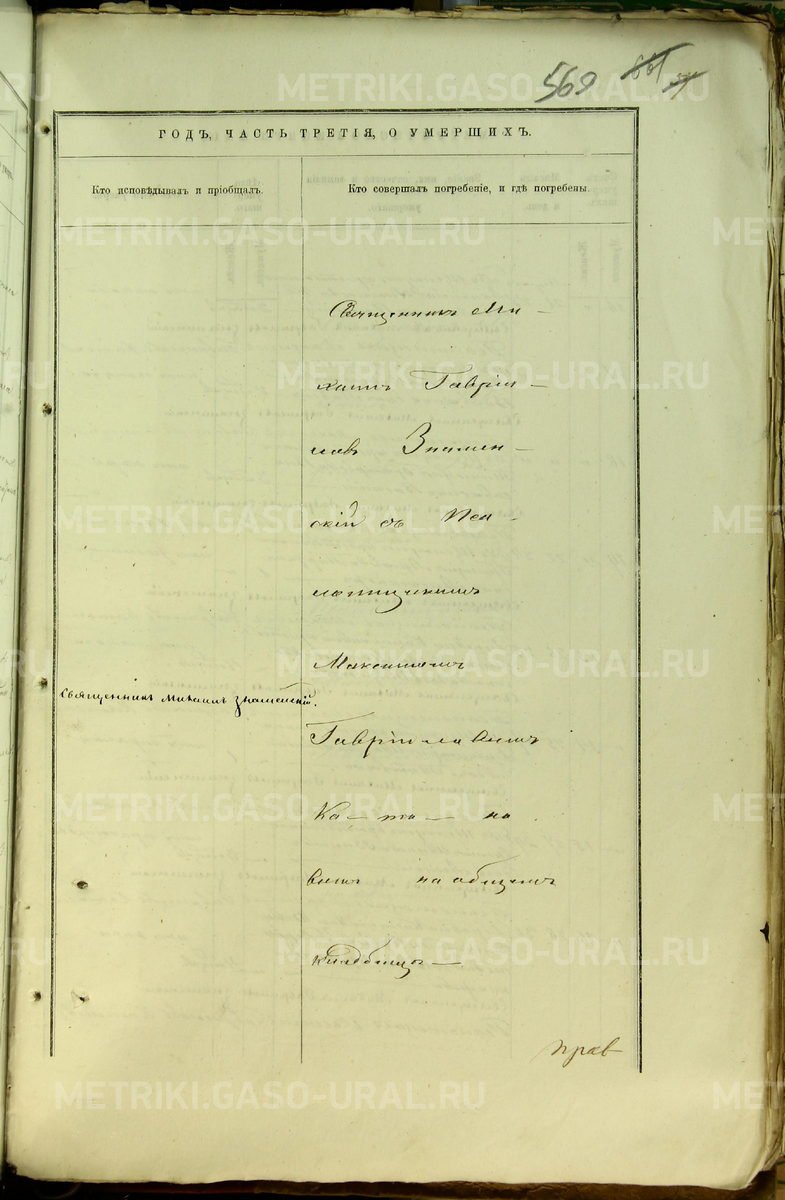 569
ГОДЪ, ЧАСТЬ ТРЕТІЯ, О УМЕРШИХЪ.
Кто исповѣдывалъ и пріобщалъ.
Кто совершалъ погребеніе, и гдѣ погребены.
Священникъ Михаилъ Знаменскій.
Священникъ Ми-
хаилъ Гаврiи-
ловъ Знамен-
скій съ Пса-
ломщикомъ
Максимомъ
Гавріиловымъ
Ка-та-но
вымъ на общемъ
кладбищѣ
METRIKI.GASO-URAL.RU